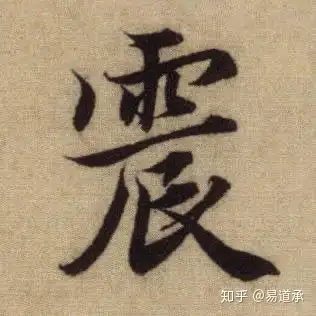 震
知乎 @易道承